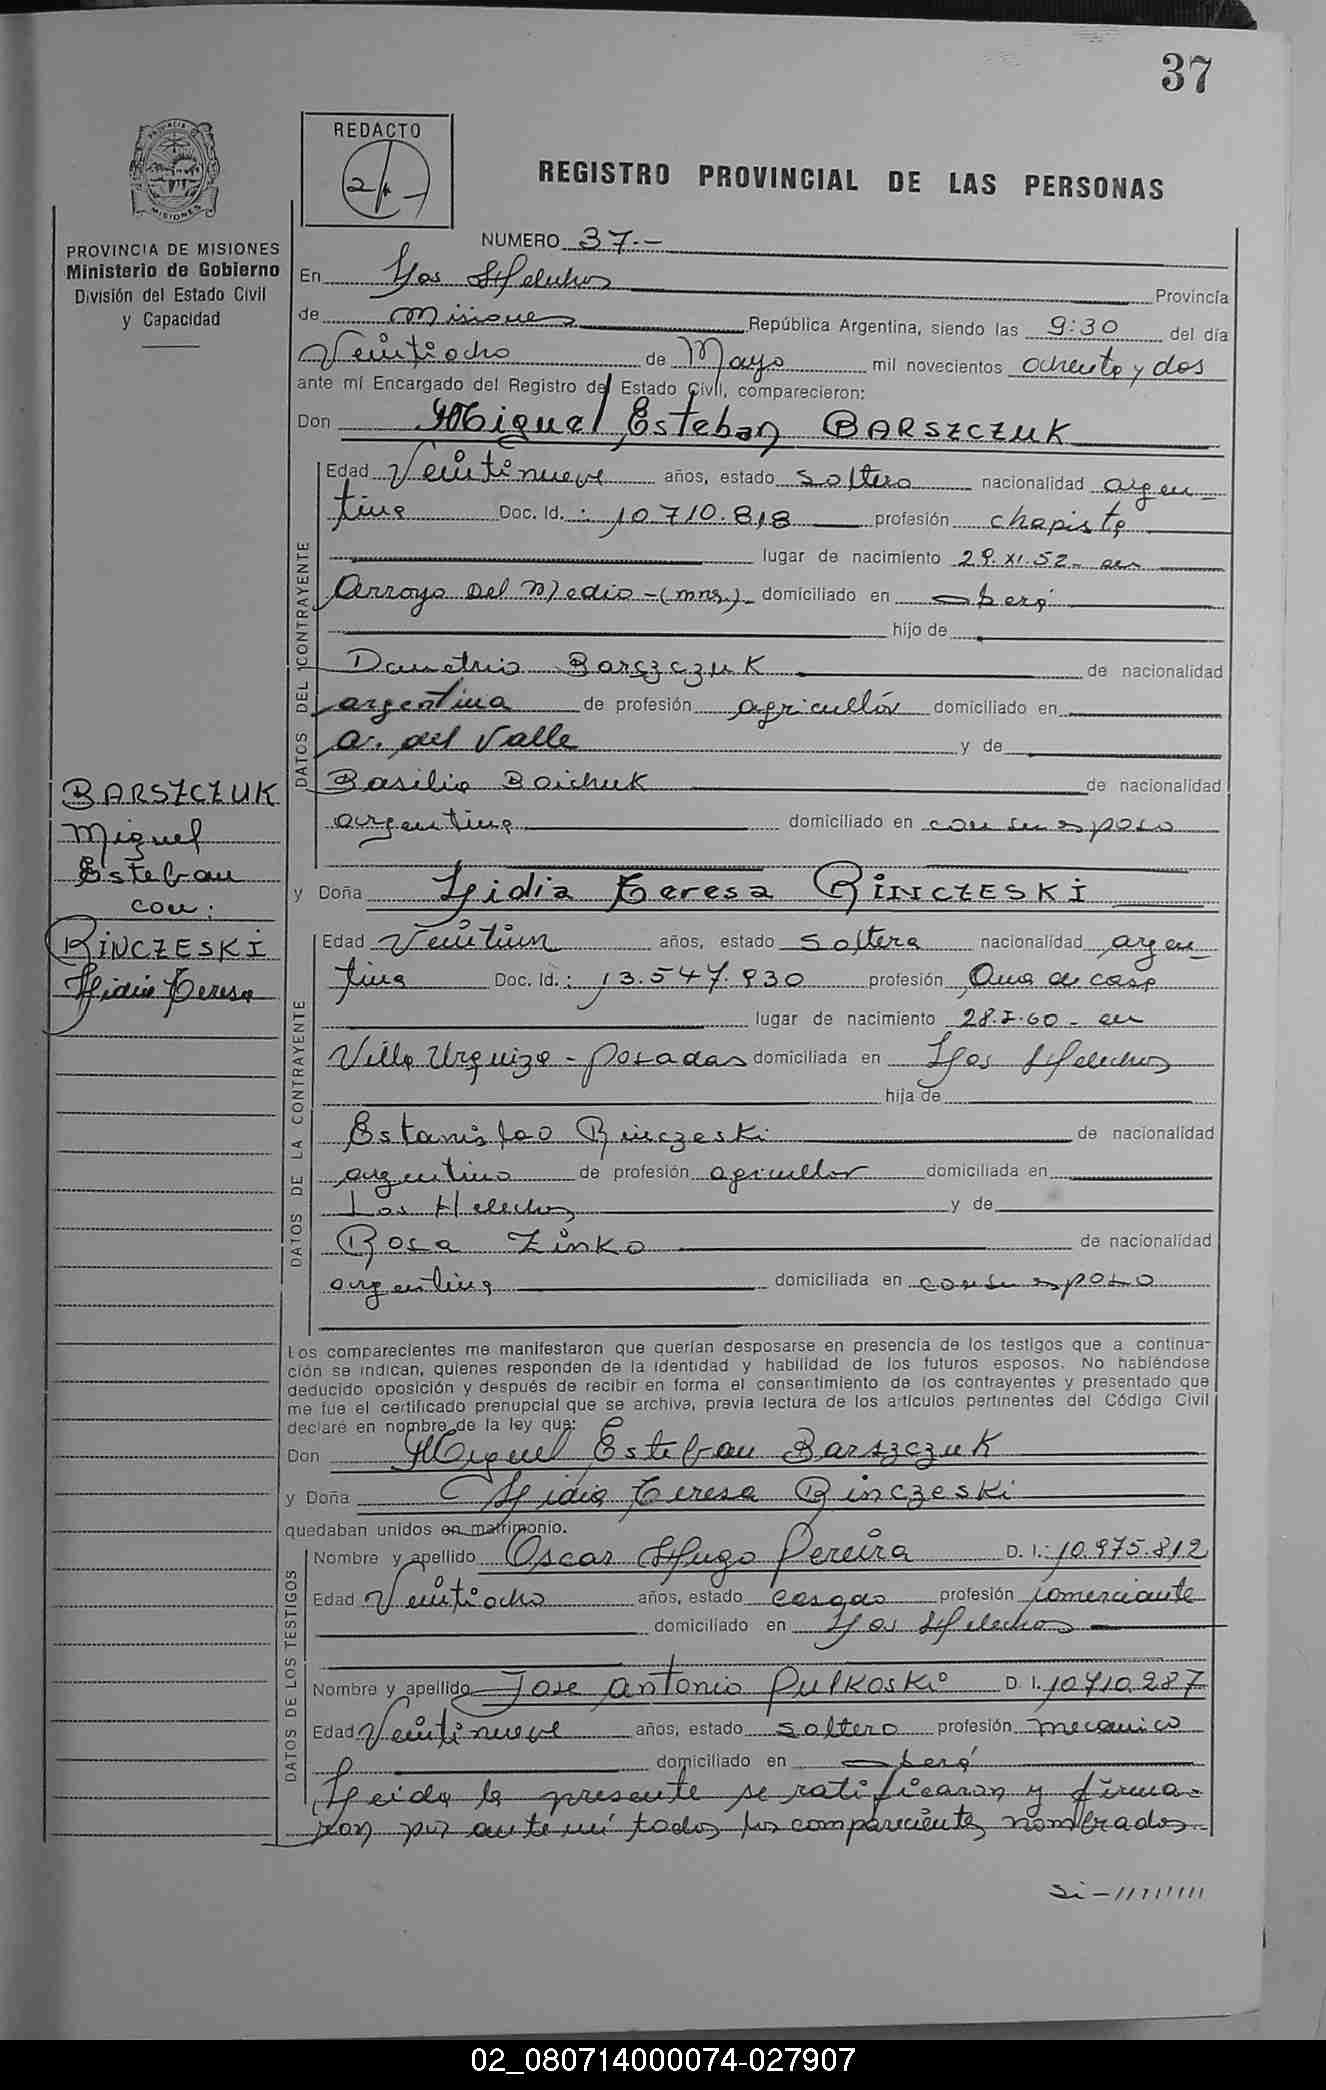 37
REDACTO
REGISTRO PROVINCIAL DE LAS PERSONAS
PROVINCIA DE MISIONES
Ministerio de Gobierno
División del Estado Civil
y Capacidad
NUMERO 37.-
En Los Helechos Provincia
de Misiones República Argentina, siendo las 9:30 del día
Veintiocho de Mayo mil novecientos ochenta y dos
ante mí Encargado del Registro del Estado Civil, comparecieron:
Don Miguel Esteban BARSZCZUK
DATOS DEL CONTRAYENTE
Edad Veintinueve años, estado soltero nacionalidad argen-
tina Doc. Id. : 10.710.818 profesión chapista
lugar de nacimiento 29.XI.52 - en
Arroyo del Medio-(mns.)- domiciliado en oberá
hijo de
Demetrio Barszczuk de nacionalidad
argentina de profesión agricultor domiciliado en
a. del Valle y de
Basilia Baichuk de nacionalidad
argentina domiciliado en con su esposo
BARSZCZUK
Miguel
Esteban
con:
RINCZESKI
Lidia Teresa
y Doña Lidia Teresa RINCZESKI
DATOS DE LA CONTRAYENTE
Edad Veintiun años, estado soltera nacionalidad argen-
tina Doc. Id. : 13.547.930 profesión Ama de casa
lugar de nacimiento 28.I.60 - en
Villa Urquiza - Posadas domiciliada en Los Helechos
hija de
Estanislao Rinczeski de nacionalidad
argentino de profesión agricultor domiciliada en
Los Helechos y de
Rosa Zinko de nacionalidad
argentina domiciliada en con su esposo
Los comparecientes me manifestaron que querían desposarse en presencia de los testigos que a continua-
ción se indican, quienes responden de la identidad y habilidad de los futuros esposos. No habiéndose
deducido oposición y después de recibir en forma el consentimiento de los contrayentes y presentado que
me fue el certificado prenupcial que se archiva, previa lectura de los artículos pertinentes del Código Civil
declaré en nombre de la ley que:
Don Miguel Esteban Barszczuk
y Doña Lidia Teresa Rinczeski
quedaban unidos en matrimonio.
DATOS DE LOS TESTIGOS
Nombre y apellido Oscar Hugo Pereira D. I.: 10.975.812
Edad Veintiocho años, estado casado profesión comerciante
domiciliado en Los Helechos
Nombre y apellido Jose Antonio Pulkoski D. I. 10.710.287
Edad Veintinueve años, estado soltero profesión mecanico
domiciliado en oberá
Leida la presente se ratificaron y firma-
ron por ante mí todos los comparecientes nombrados.-
02_080714000074-027907